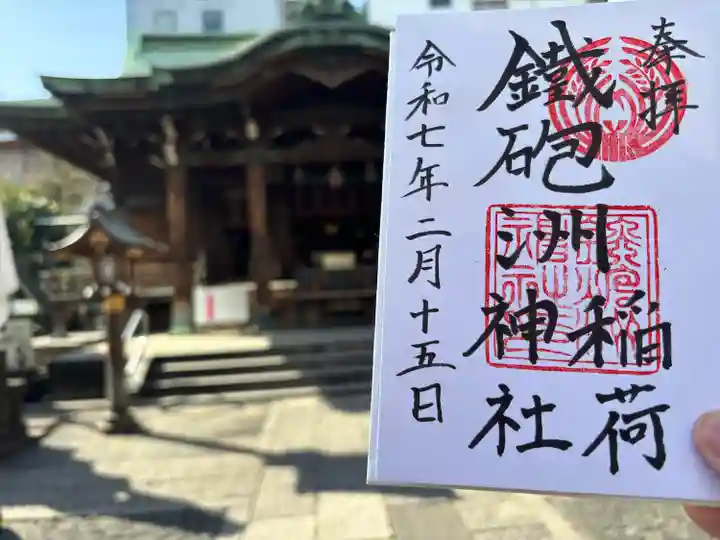 奉拝
鐵砲洲稲荷神社
令和七年二月十五日